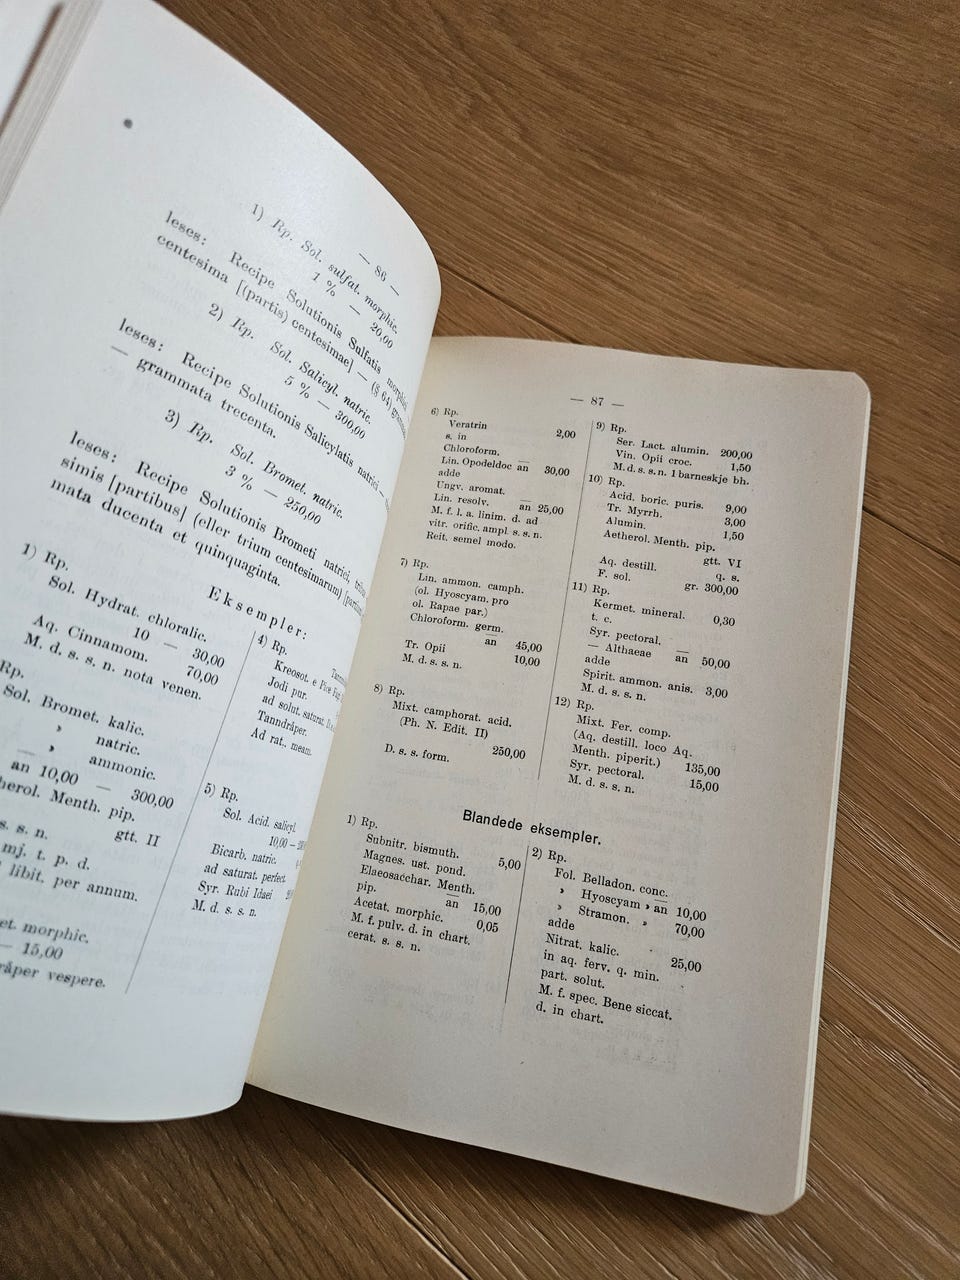 — 86 —
1) Rp. Sol. sulfat. morphic.
1 % — 20,00
leses: Recipe Solutionis Sulfatis
centesima [(partis) centesimae] — (§ 64)
2) Rp. Sol. Salicyl. natric.
5 % — 300,00
leses: Recipe Solutionis Salicylatis natrici
— grammata trecenta.
3) Rp. Sol. Bromet. natric.
3 % — 250,00
leses: Recipe Solutionis Brometi natrici,
simis [partibus] (eller trium centesimarum)
mata ducenta et quinquaginta.
Eksempler:
1) Rp.
Sol. Hydrat. chloralic.
10 — 30,00
Aq. Cinnamom. 70,00
M. d. s. s. n. nota venen.
Rp.
Sol. Bromet. kalic.
» natric.
» ammonic.
an 10,00 — 300,00
Menth. pip.
gtt. II
s. s. n.
mj. t. p. d.
libit. per annum.
morphic.
— 15,00
vespere.
4) Rp.
Kreosot. e Pice
Jodi pur.
ad solut. saturat.
Tanndråper.
Ad rat. meam.
5) Rp.
Sol. Acid. salicyl.
10,00 —
Bicarb. natric.
ad saturat. perfect.
Syr. Rubi Idaei
M. d. s. s. n.
— 87 —
6) Rp.
Veratrin 2,00
s. in
Chloroform.
Lin. Opodeldoc an 30,00
adde
Ungv. aromat.
Lin. resolv. an 25,00
M. f. l. a. linim. d. ad
vitr. orific. ampl s. s. n.
Reit. semel modo.
7) Rp.
Lin. ammon. camph.
(ol. Hyoscyam. pro
ol. Rapae par.)
Chloroform. germ.
an 45,00
Tr. Opii 10,00
M. d. s. s. n.
8) Rp.
Mixt. camphorat. acid.
(Ph. N. Edit. II)
250,00
D. s. s. form.
9) Rp.
Ser. Lact. alumin. 200,00
Vin. Opii croc. 1,50
M. d. s. s. n. 1 barneskje bh.
10) Rp.
Acid. boric. puris. 9,00
Tr. Myrrh. 3,00
Alumin. 1,50
Aetherol. Menth. pip.
gtt. VI
Aq. destill. q. s.
F. sol. gr. 300,00
11) Rp.
Kermet. mineral. 0,30
t. c.
Syr. pectoral.
— Althaeae an 50,00
adde
Spirit. ammon. anis. 3,00
M. d. s. s. n.
12) Rp.
Mixt. Fer. comp.
(Aq. destill. loco Aq.
Menth. piperit.) 135,00
Syr. pectoral. 15,00
M. d. s. s. n.
Blandede eksempler.
1) Rp.
Subnitr. bismuth. 5,00
Magnes. ust. pond.
Elaeosacchar. Menth.
pip. an 15,00
Acetat. morphic. 0,05
M. f. pulv. d. in chart.
cerat. s. s. n.
2) Rp.
Fol. Belladon. conc.
» Hyoscyam » an 10,00
» Stramon. » 70,00
adde
Nitrat. kalic. 25,00
in aq. ferv. q. min.
part. solut.
M. f. spec. Bene siccat.
d. in chart.